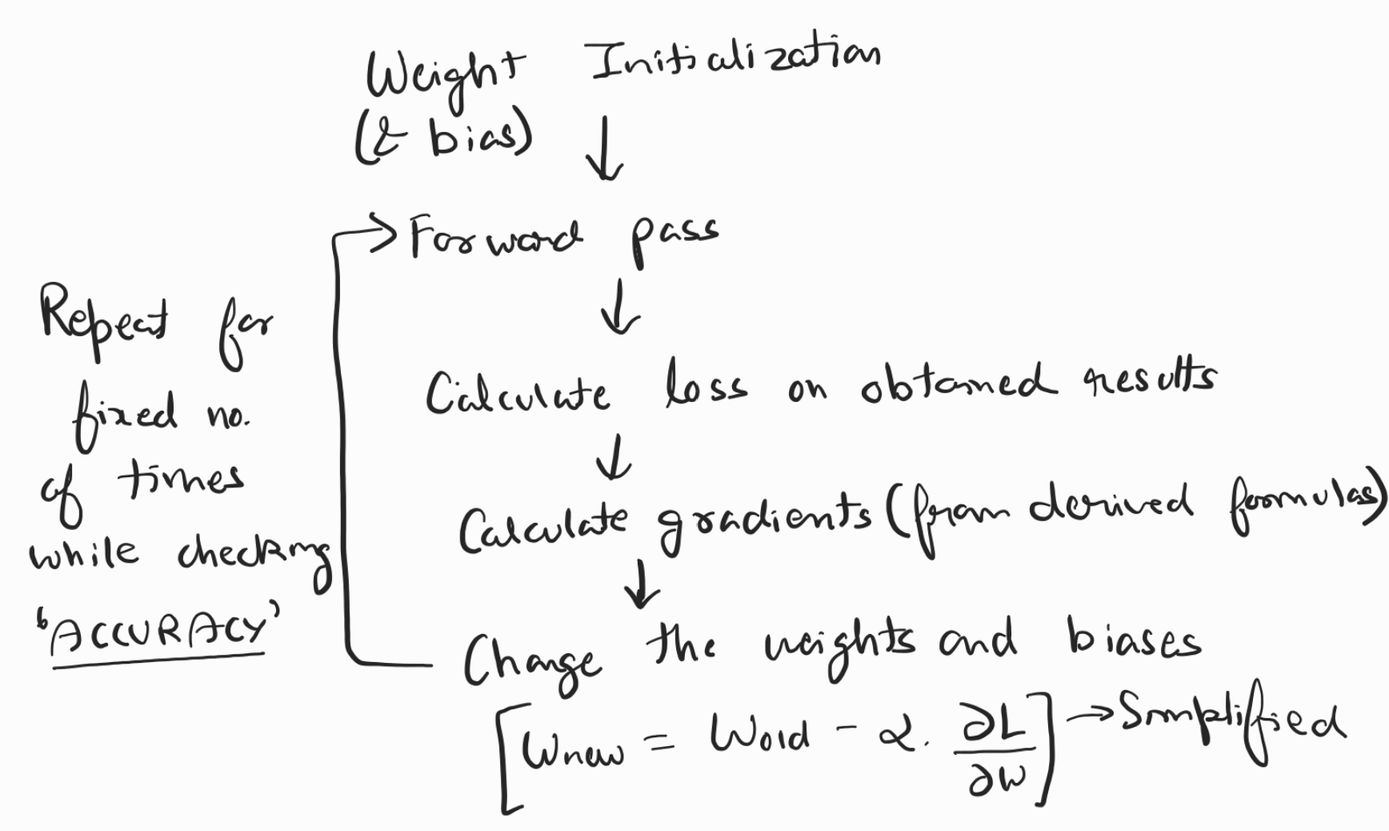 Weight Initialization
(& bias)
↓
→ Forward pass
↓
Calculate loss on obtained results
↓
Calculate gradients (from derived formulas)
↓
Change the weights and biases
[Wnew = Wold - α. ∂L/∂w] → Simplified
Repeat for
fixed no.
of times
while checking
'ACCURACY'